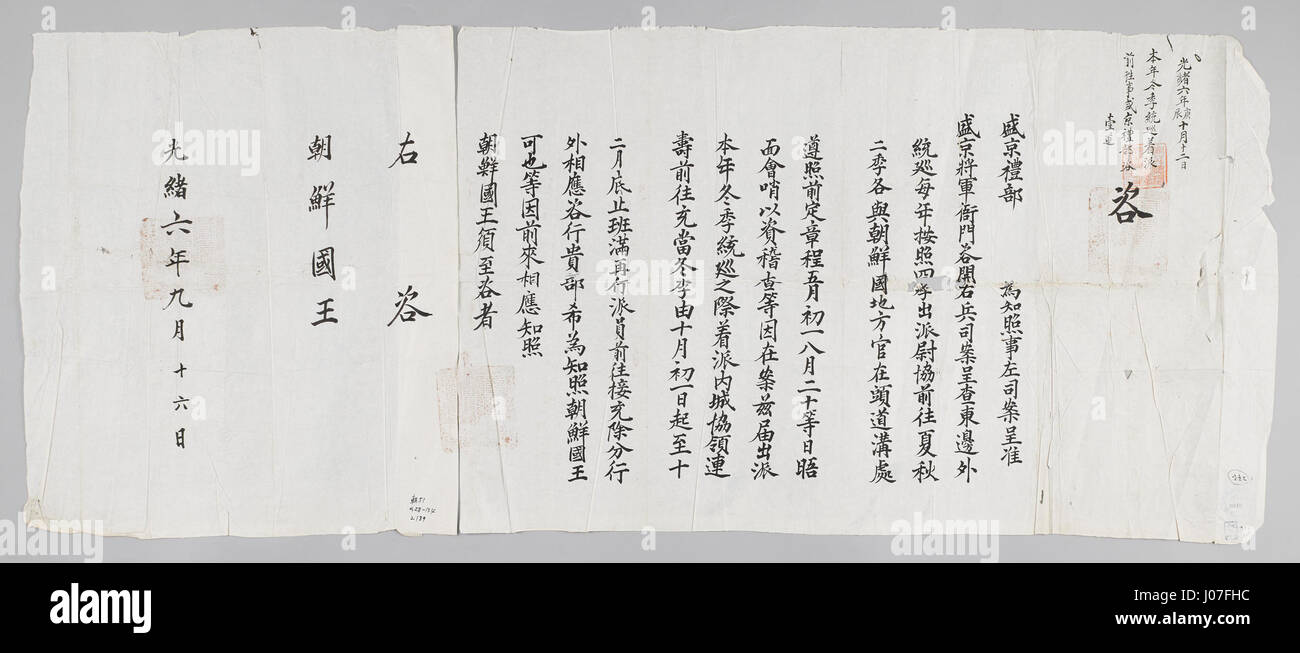 光緒六年庚辰十月十二日
本年冬季統巡着派
前往事盛京禮部咨
壹道
咨
盛京禮部 為知照事左司案呈准
盛京將軍衙門咨開右兵司案呈查東邊外
統巡每年按照四季出派尉協前往夏秋
二季各與朝鮮國地方官在頭道溝處
遵照前定章程五月初一八月二十等日晤
面會哨以資稽查等因在案茲届出派
本年冬季統巡之際着派內城協領連
壽前往充當冬季由十月初一日起至十
二月底止班滿再行派員前往接充除分行
外相應咨行貴部希為知照朝鮮國王
可也等因前來相應知照
朝鮮國王須至咨者
右 咨
朝鮮國王
光緒六年九月十六日
alamy
Image ID: J07FHC
www.alamy.com